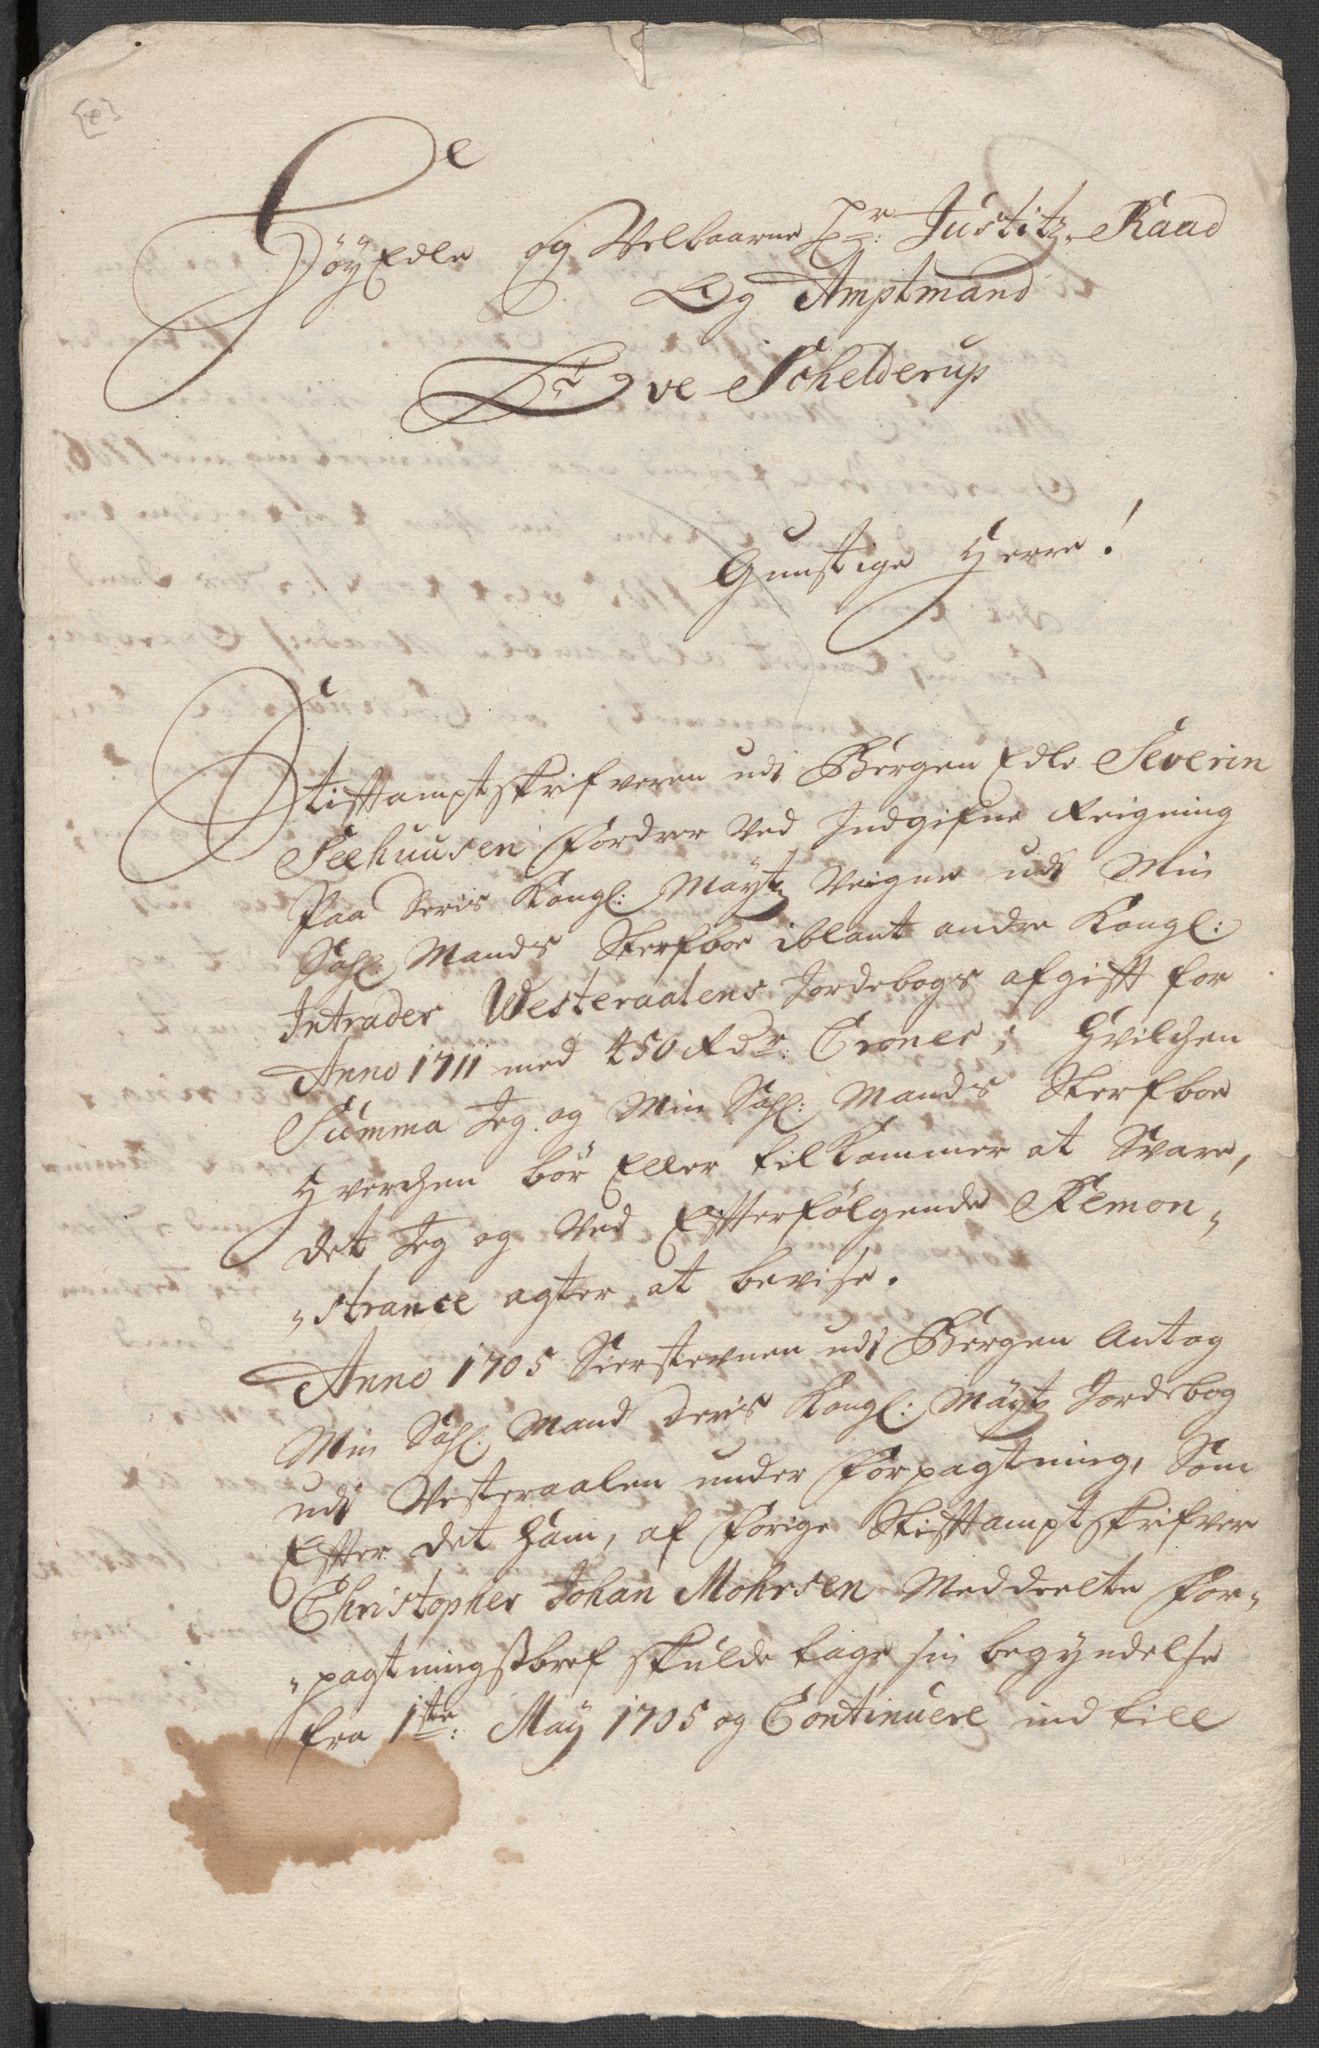 HöyEdle og Velbaarne Hr: Justitz Raad
Og Amptmand
Hr Ove Schelderup
Gunstige Herre!
Stifftamptskrifveren udi Bergen Edle Severin
Seehuusen fordrer ved Indgifne Reigning
Paa Deris Kongl: Maytz Veigne udi Min
Sahl: Mands Sterfboe iblant andre Kongl:
Intrader Westeraalens Jordebogs afgifft for
Anno 1711 med 450 Rdr: Croner; Hvilchen
Summa Jeg og Min Sahl: Mands Sterfboe
Hverchen bör Eller tilkommer at Svare,
det Jeg og Ved Efterfölgende Remon„
„strance agter at bevise.
Anno 1705 Sierstevnen udi Bergen Antog
Min Sahl: Mand Deris Kongl: Maytz Jordebog
udi Vesteraalen under Forpagtning, Som
Effter det ham, af forige Stifftamptskrifver
Christopher Johan Mohrsen Meddeelte For„
„pagtningsbref skulde tage sin begyndelse
fra 1ste: May 1705 og Continuere ind till